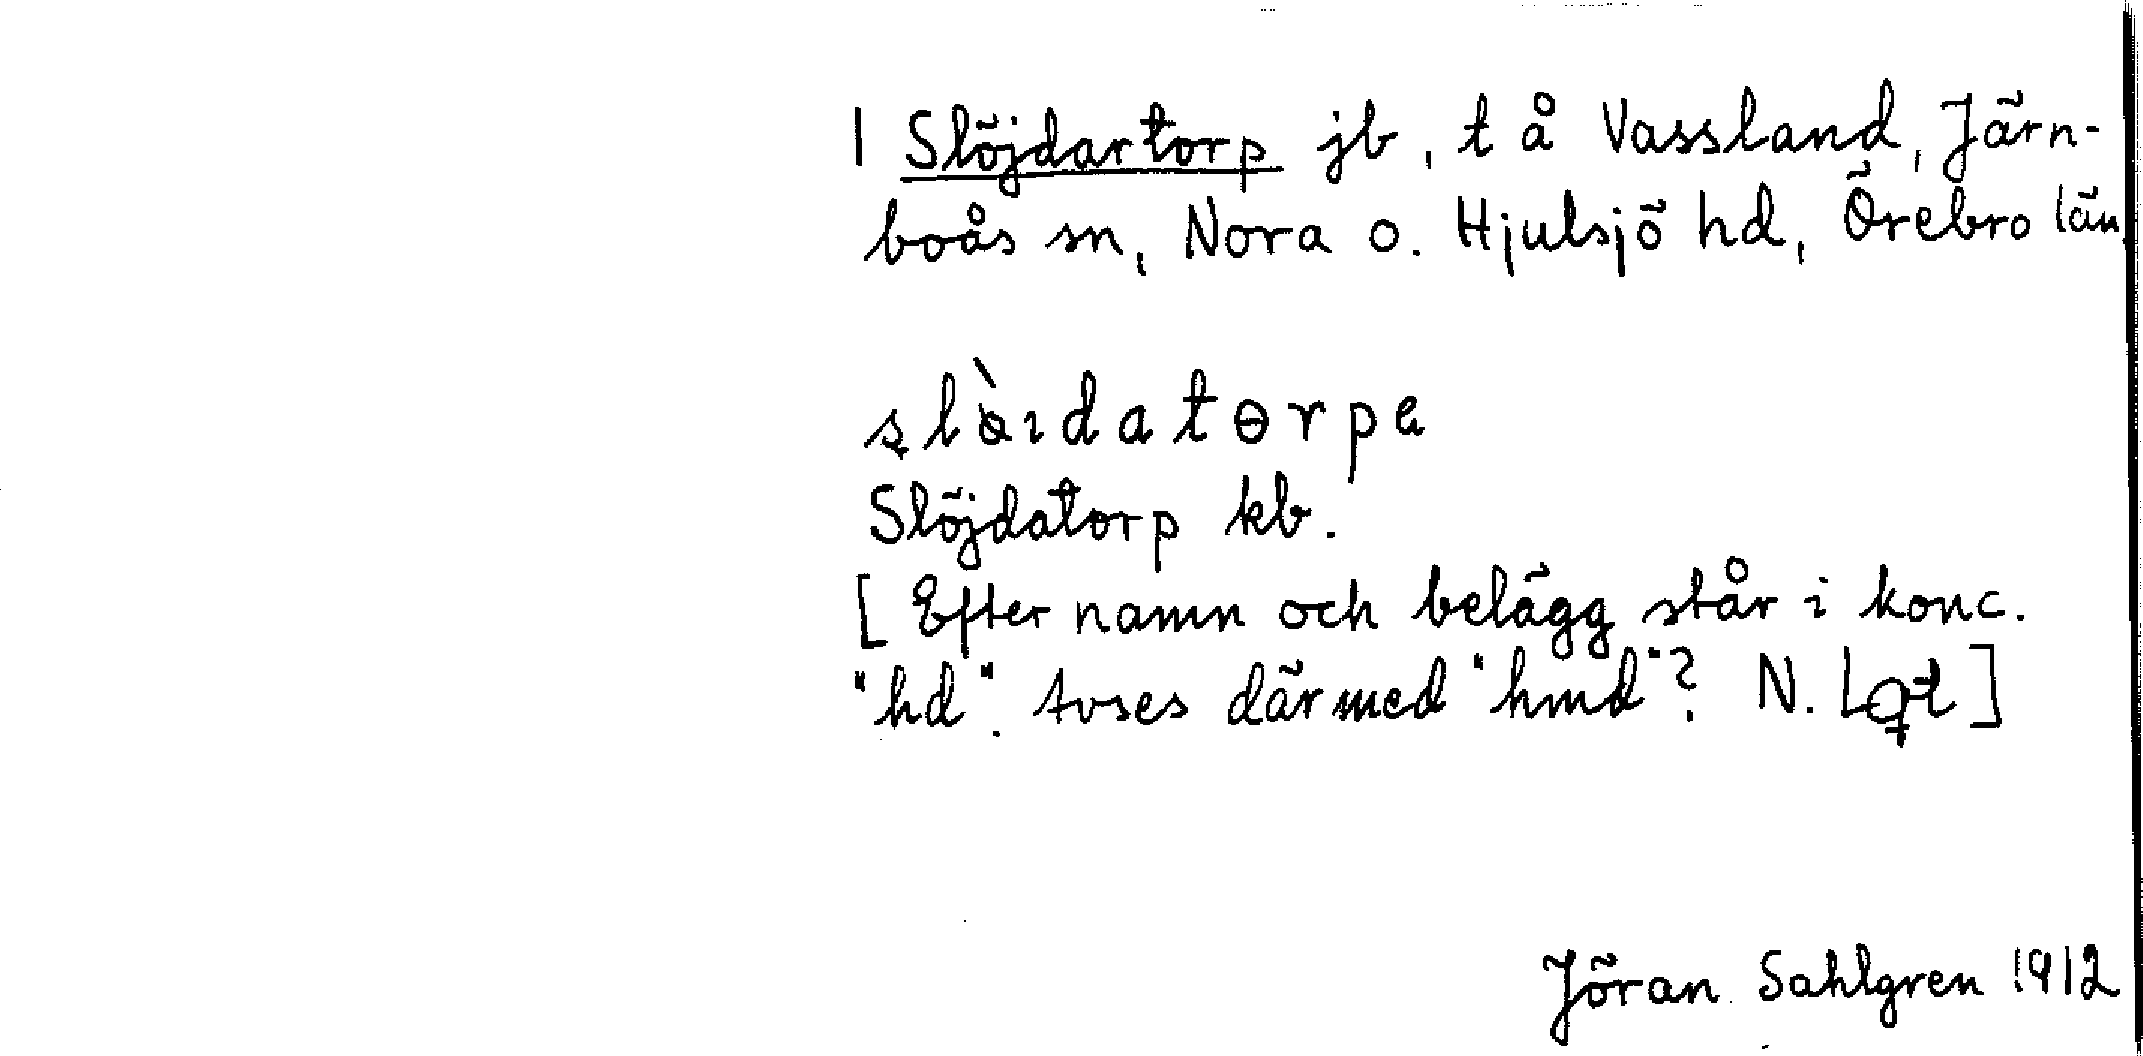 1 Slöjdartorp jb, t å Vassland, Järn-
boås sn, Nora o. Hjulsjö hd, Örebro län
Slöjdatorp kb.
[ Efter namn och belägg står i konc.
"hd". Avses därmed "hmd"? N. Lgt ]
Jöran Sahlgren 1912